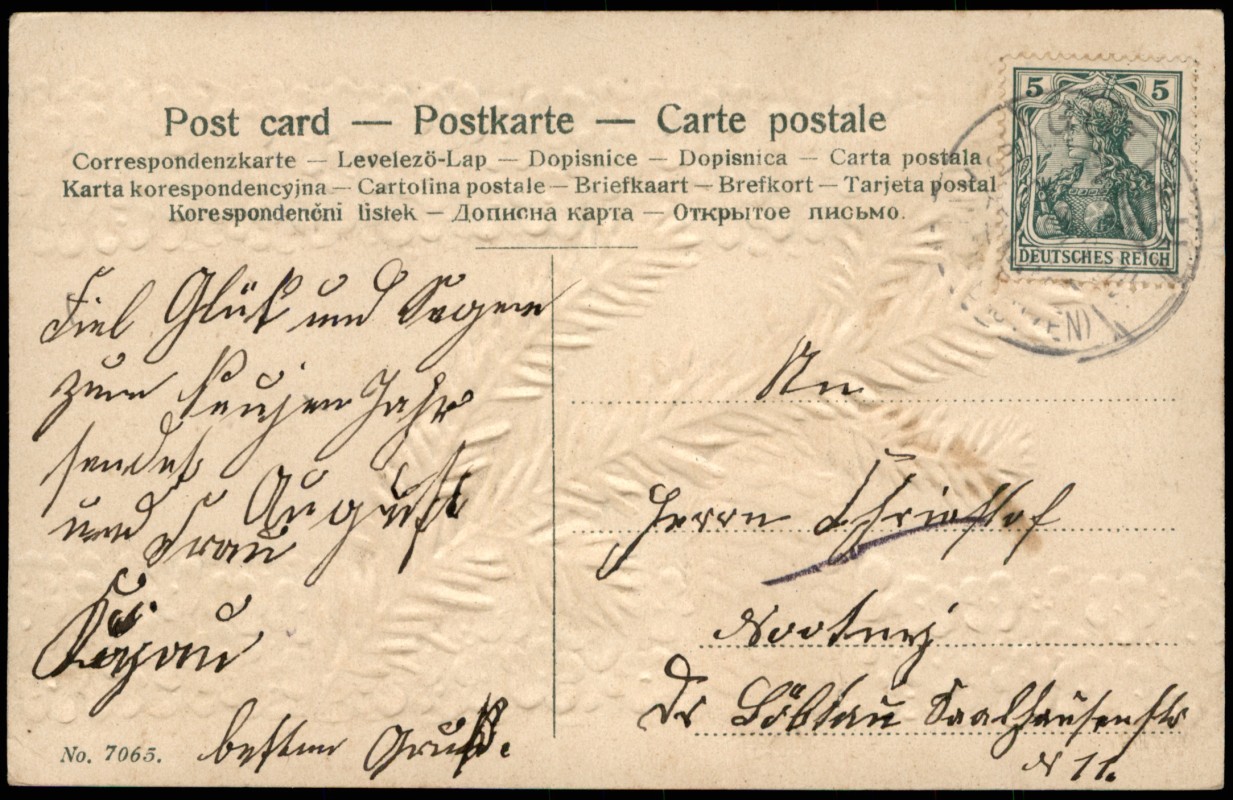 Post card — Postkarte — Carte postale
Correspondenzkarte — Levelező-Lap — Dopisnice — Dopisnica — Carta postala
Karta korespondencyjna — Cartolina postale — Briefkaart — Brefkort — Tarjeta postal
Korespondenčni listek — Дописна карта — Открытое письмо.
5 5
DEUTSCHES REICH
Fiel Glük und Segen
zum Jahr
sendet
August
und Frau
besten Gruß.
No. 7065.
An
Herrn
Dr Löbtau Saalhausenstr
N 11.